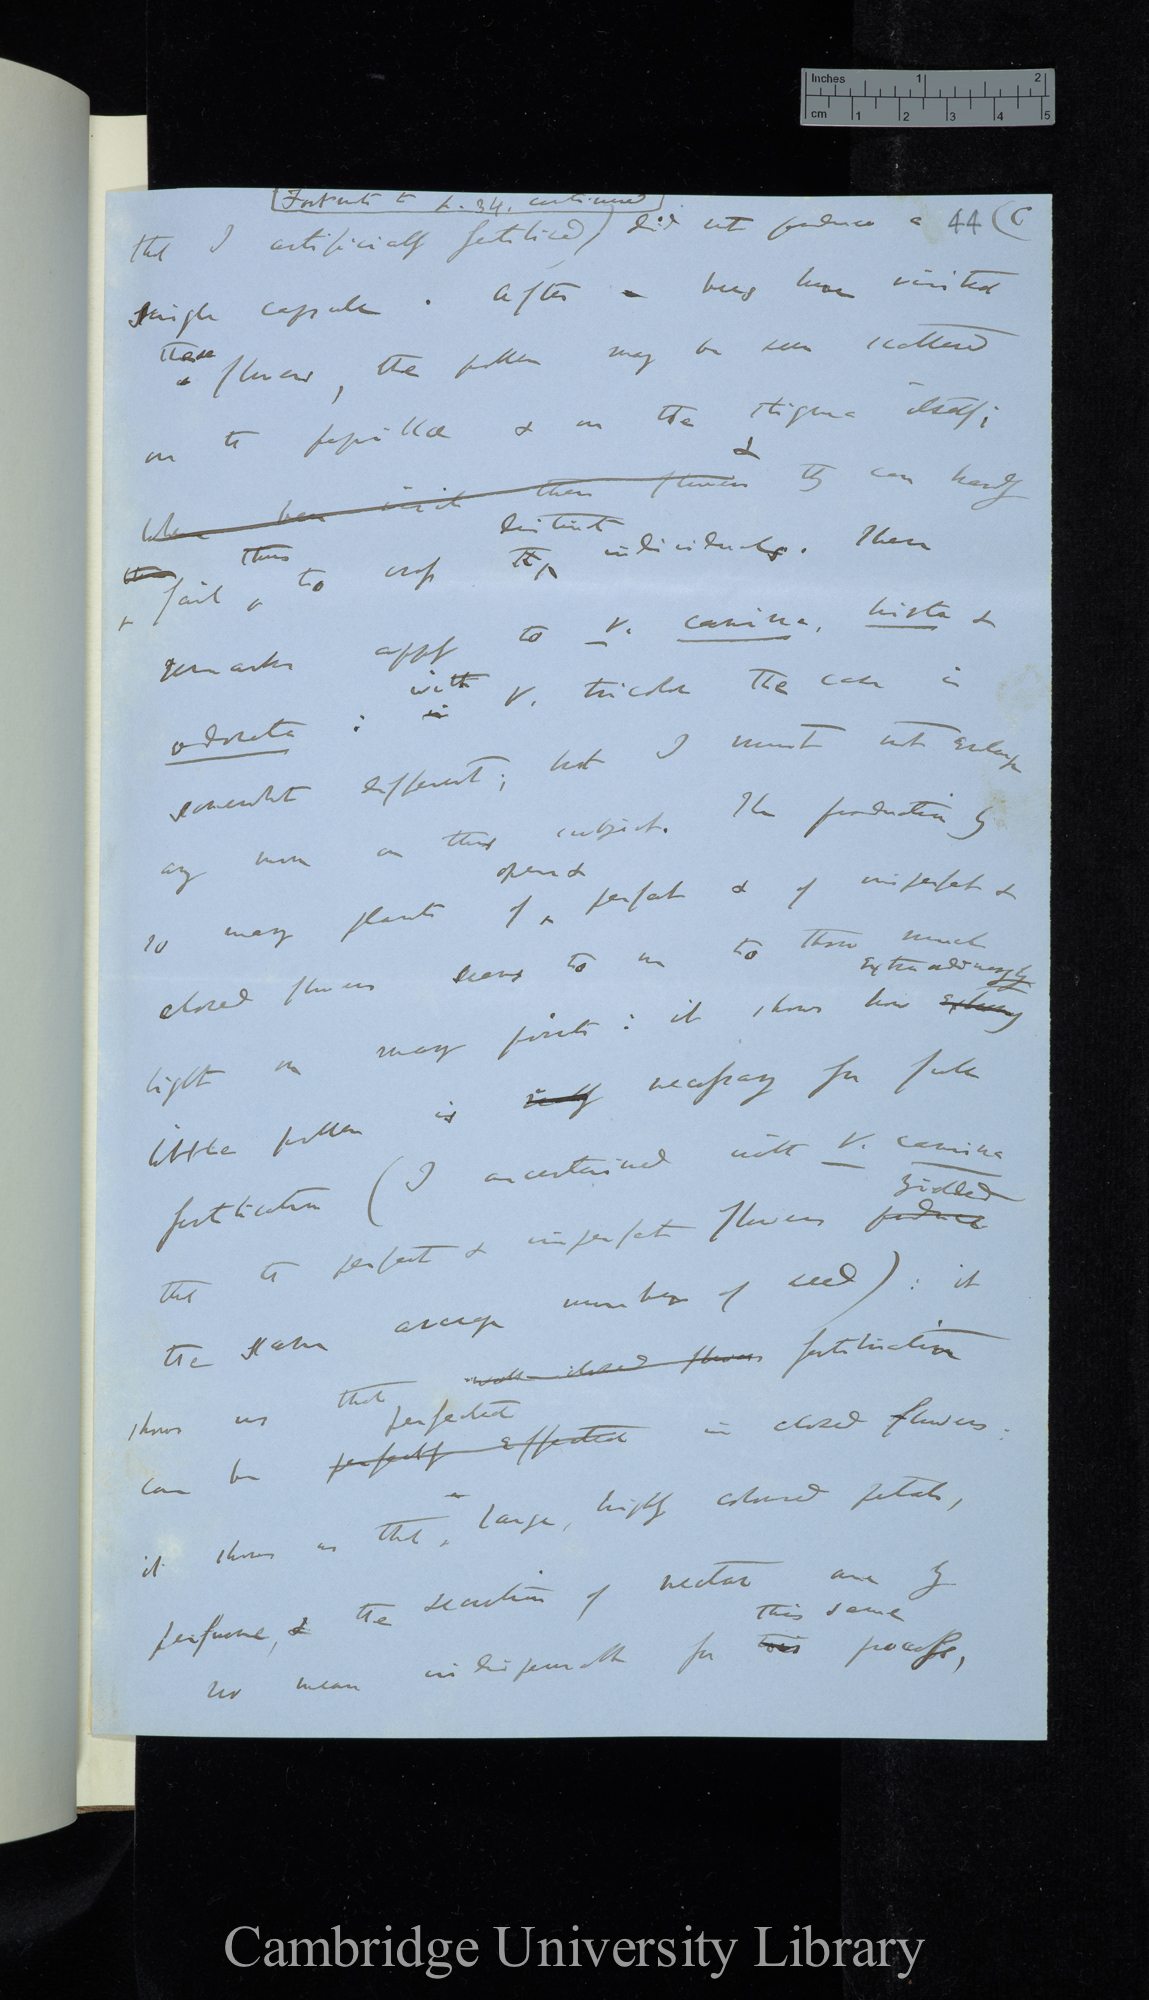 Inches 1 2
cm 1 2 3 4 5
Footnote to p. 34. continued
that I artificially fertilised) did not produce a 44 (6
single capsule. After bees have visited
these flowers, the pollen may be seen scattered
on the papillæ & on the stigma itself;
when bees visit these flowers & they can hardly
fail thus to cross the distinct individuals. These
remarks apply to V. canina, hirta &
odorata: in with V. tricolor the case is
somewhat different; but I must not enlarge
any more on this subject. The production by
so many plants of open & perfect & of imperfect &
closed flowers seems to me to throw much
light on many points: it shows how extraordinarily
little pollen is necessary for full
fertilisation (I ascertained with V. canina
that the perfect & imperfect flowers produce yielded
the same average number of seed): it
shows us that closed flowers fertilisation
can be perfectly effected perfected in closed flowers:
it shows us that large, highly coloured petals,
perfume, & the secretion of nectar are by
no means indispensable for this this same process,
Cambridge University Library